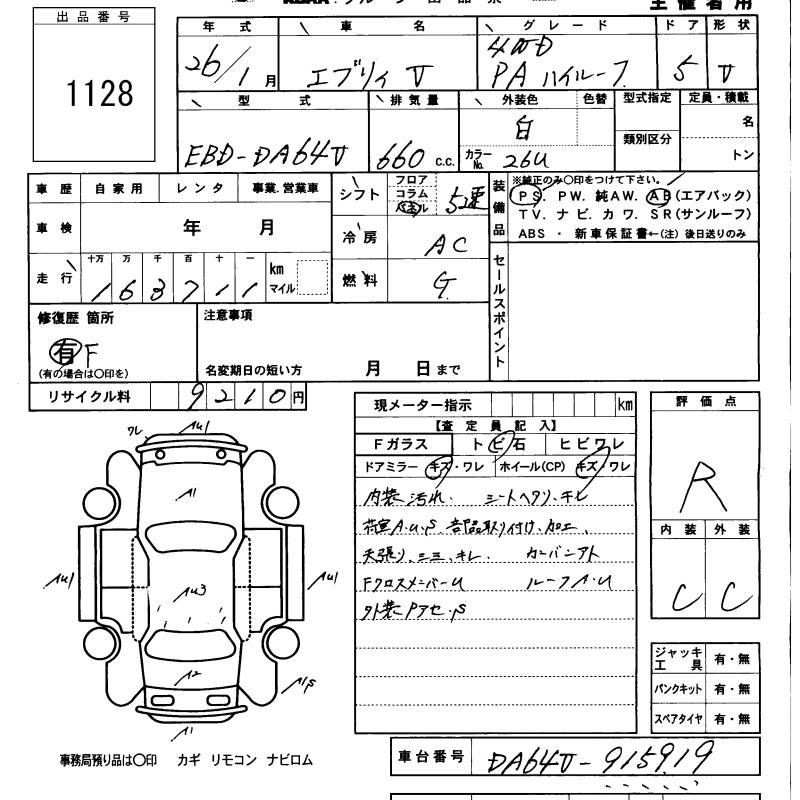 主催者用
出品番号
1128
年式 車名 グレード ドア 形状
26/1月 エブリィV 4WD PA ハイルーフ 5 V
型式 排気量 外装色 色替 型式指定 定員・積載
EBD-DA64V 660 c.c. 白 類別区分 名
カラーNo. 26U トン
車歴 自家用 レンタ 事業.営業車
車検 年 月
走行 十万 万 千 百 十 一 km マイル
163711
シフト フロア コラム パネル 5速
冷房 AC
燃料 G
装備品
※純正のみ○印をつけて下さい。
PS. PW. 純AW. AB(エアバック)
TV. ナビ. カワ. SR(サンルーフ)
ABS ・ 新車保証書←(注) 後日送りのみ
セールスポイント
修復歴 箇所 注意事項
有 F
(有の場合は○印を) 名変期日の短い方 月 日まで
リサイクル料 9210円
現メーター指示 km
【査定員記入】
Fガラス トビ石 ヒビワレ
ドアミラー キズ・ワレ ホイール(CP) キズ・ワレ
内装汚れ、シートヘタリ、キレ
荷室A.U.S、部品取り付け、加工、
天張り、ミミ、キレ、 カーバンアト
FクロスメンバーU ルーフA.U
外装Pアセ.S
評価点
R
内装 外装
C C
ワレ AU1
A1
AU1 AU3 AU1
A2
A1S
A1
事務局預り品は○印 カギ リモコン ナビロム
ジャッキ工具 有・無
パンクキット 有・無
スペアタイヤ 有・無
車台番号 DA64V-915919